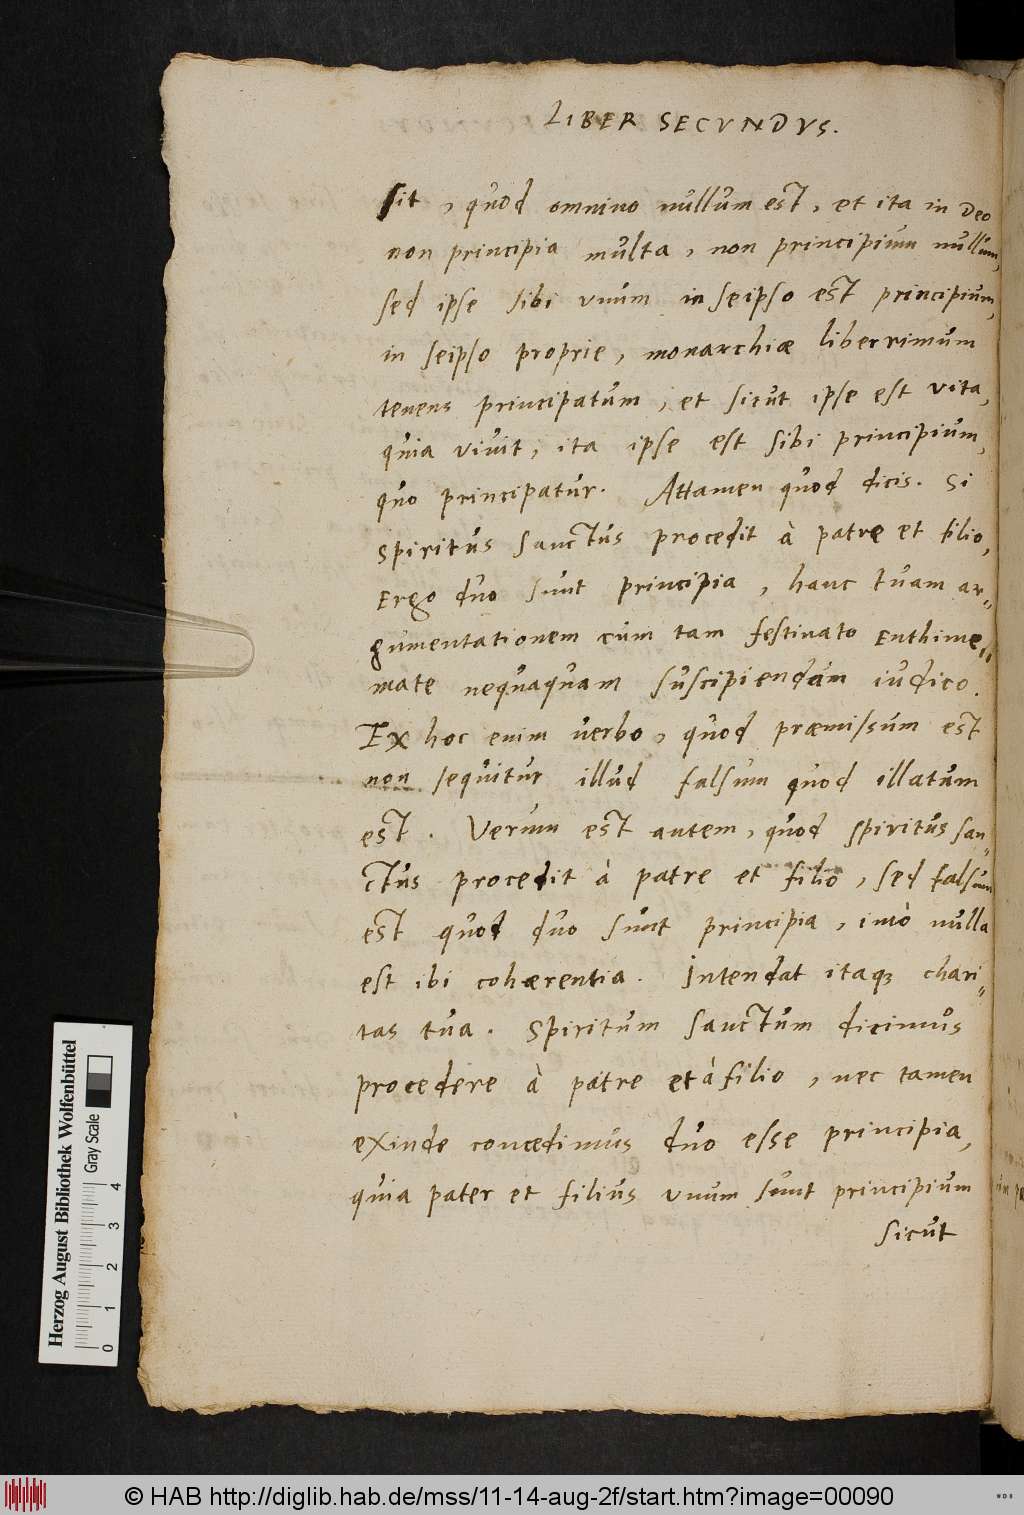 LIBER SECVNDVS.
sit, quod omnino nullum est, et ita in Deo
non principia multa, non principium nullum,
sed ipse sibi unum in seipso est principium,
in seipso proprie, monarchiæ liberrimum
tenens principatum, et sicut ipse est vita,
quia vivit, ita ipse est sibi principium,
quo principatur. Attamen quod dicis. Si
Spiritus sanctus procedit à patre et filio,
Ergo duo sunt principia, hanc tuam ar-
gumentationem cùm tam festinato Enthime-
mate nequaquam suscipiendam iudico.
Ex hoc enim verbo, quod præmissum est
non sequitur illud falsum quod illatum
est. Verum est autem, quod spiritus san-
ctus procedit à patre et filio, sed falsum
est quod duo sunt principia, imò nulla
est ibi cohærentia. Intendat itaqȝ chari-
tas tua. Spiritum sanctum dicimus
procedere à patre et à filio, nec tamen
exinde concedimus duo esse principia,
quia pater et filius unum sunt principium
sicut
Herzog August Bibliothek Wolfenbüttel
Gray Scale
0 1 2 3 4
© HAB http://diglib.hab.de/mss/11-14-aug-2f/start.htm?image=00090